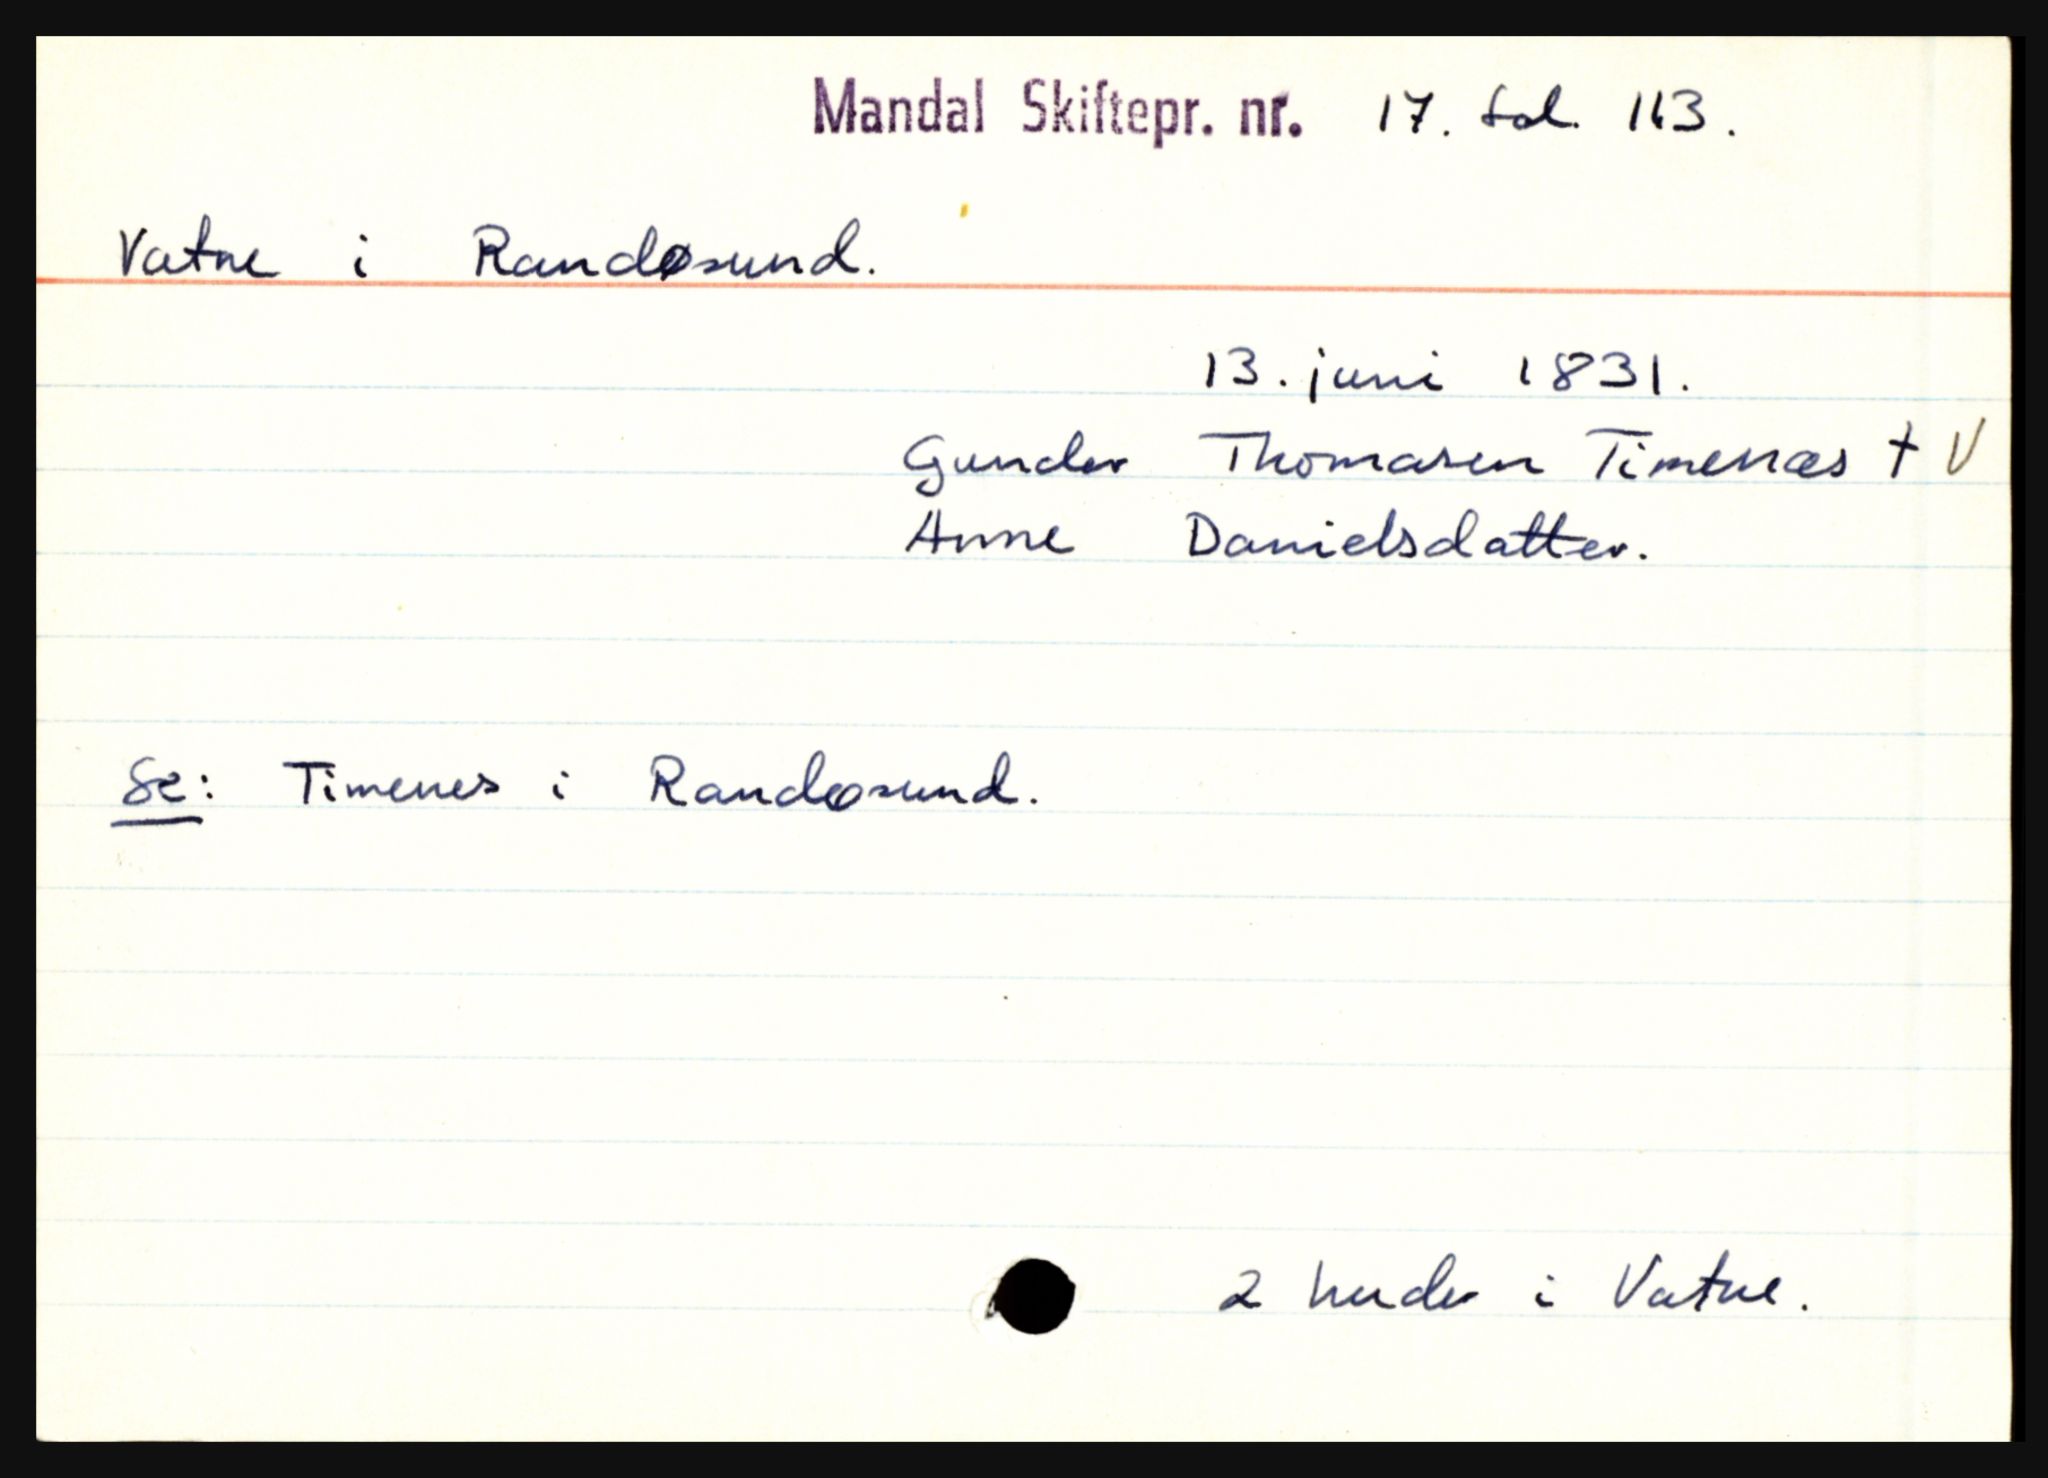 Mandal Skiftepr. nr. 17. fol. 113.
Vatne i Randøsund.
13. juni 1831.
Gunder Thomasen Timenæs † V
Anne Danielsdatter.
Se: Timenes i Randøsund.
2 huder i Vatne.